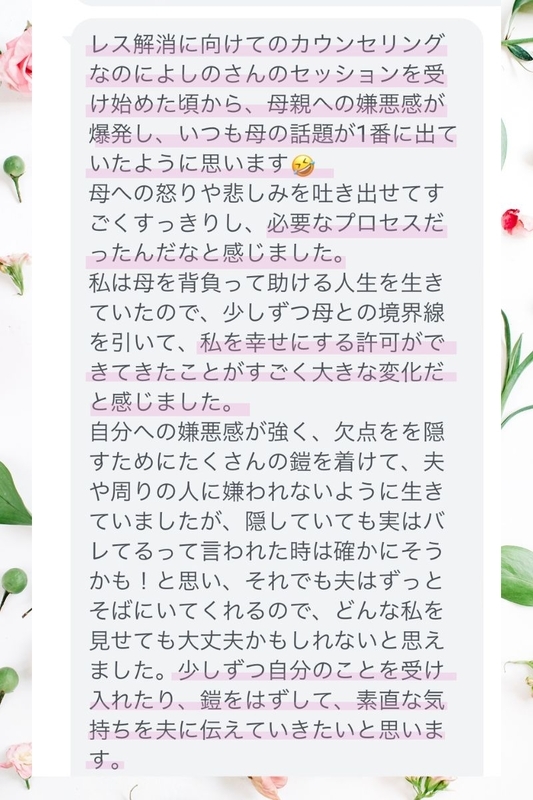 レス解消に向けてのカウンセリング
なのによしのさんのセッションを受
け始めた頃から、母親への嫌悪感が
爆発し、いつも母の話題が1番に出て
いたように思います🤣
母への怒りや悲しみを吐き出せてす
ごくすっきりし、必要なプロセスだ
ったんだなと感じました。
私は母を背負って助ける人生を生き
ていたので、少しずつ母との境界線
を引いて、私を幸せにする許可がで
きてきたことがすごく大きな変化だ
と感じました。
自分への嫌悪感が強く、欠点をを隠
すためにたくさんの鎧を着けて、夫
や周りの人に嫌われないように生き
ていましたが、隠していても実はバ
レてるって言われた時は確かにそう
かも！と思い、それでも夫はずっと
そばにいてくれるので、どんな私を
見せても大丈夫かもしれないと思え
ました。少しずつ自分のことを受け
入れたり、鎧をはずして、素直な気
持ちを夫に伝えていきたいと思いま
す。